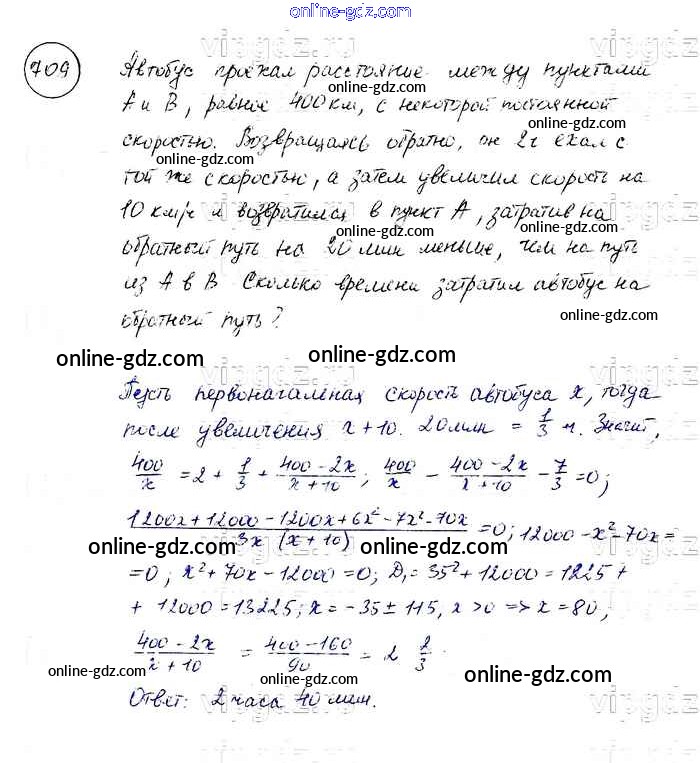 online-gdz.com
709
Автобус проехал расстояние между пунктами
А и В, равное 400 км, с некоторой постоянной
скоростью. Возвращаясь обратно, он 2ч ехал с
той же скоростью, а затем увеличил скорость на
10 км/ч и возвратился в пункт А, затратив на
обратный путь на 20 мин меньше, чем на путь
из А в В Сколько времени затратил автобус на
обратный путь?
online-gdz.com
online-gdz.com
Пусть первоначальная скорость автобуса x, тогда
после увеличения x+10. 20 мин = 1/3 ч. Значит,
400/x = 2 + 1/3 + (400-2x)/(x+10); 400/x - (400-2x)/(x+10) - 7/3 = 0;
(1200x+12000-1200x+6x²-7x²-70x)/(3x (x+10)) = 0; 12000-x²-70x =
= 0; x²+70x-12000=0; D₁=35²+12000=1225+
+ 12000=13225; x=-35±115, x>0 => x=80,
(400-2x)/(x+10) = (400-160)/90 = 2 2/3
Ответ: 2 часа 40 мин.